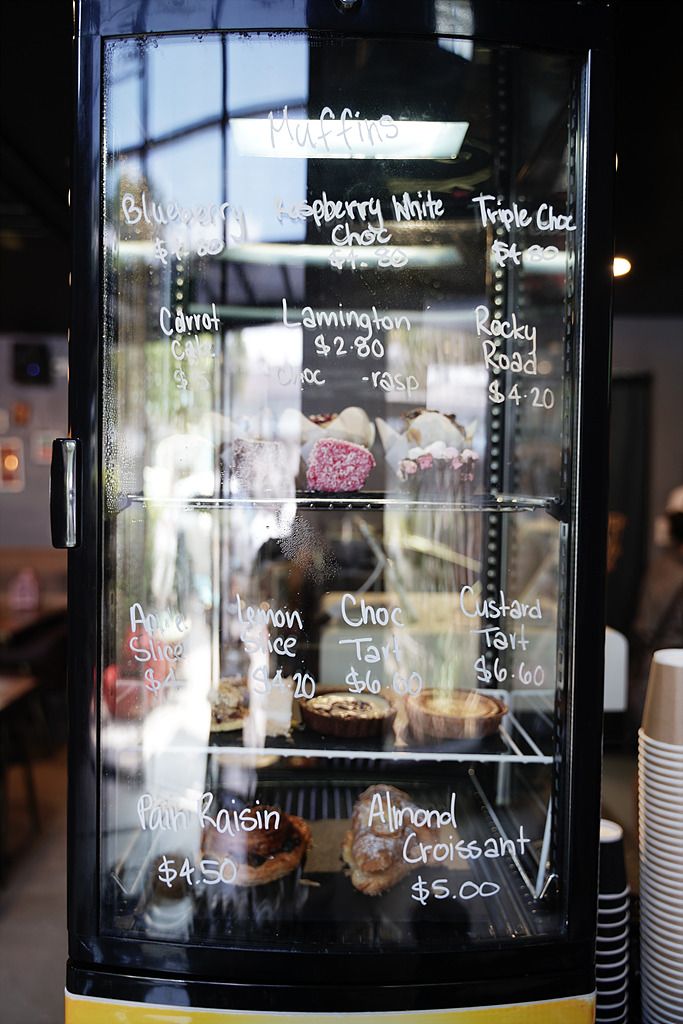 Muffins
Blueberry Raspberry White Triple Choc
Choc
$4.80 $4.80
Carrot Lamington Rocky
Cake $2.80 Road
choc -rasp $4.20
Apple Lemon Choc Custard
Slice Slice Tart Tart
$4.20 $6.60 $6.60
Pain Raisin Almond
Croissant
$4.50 $5.00